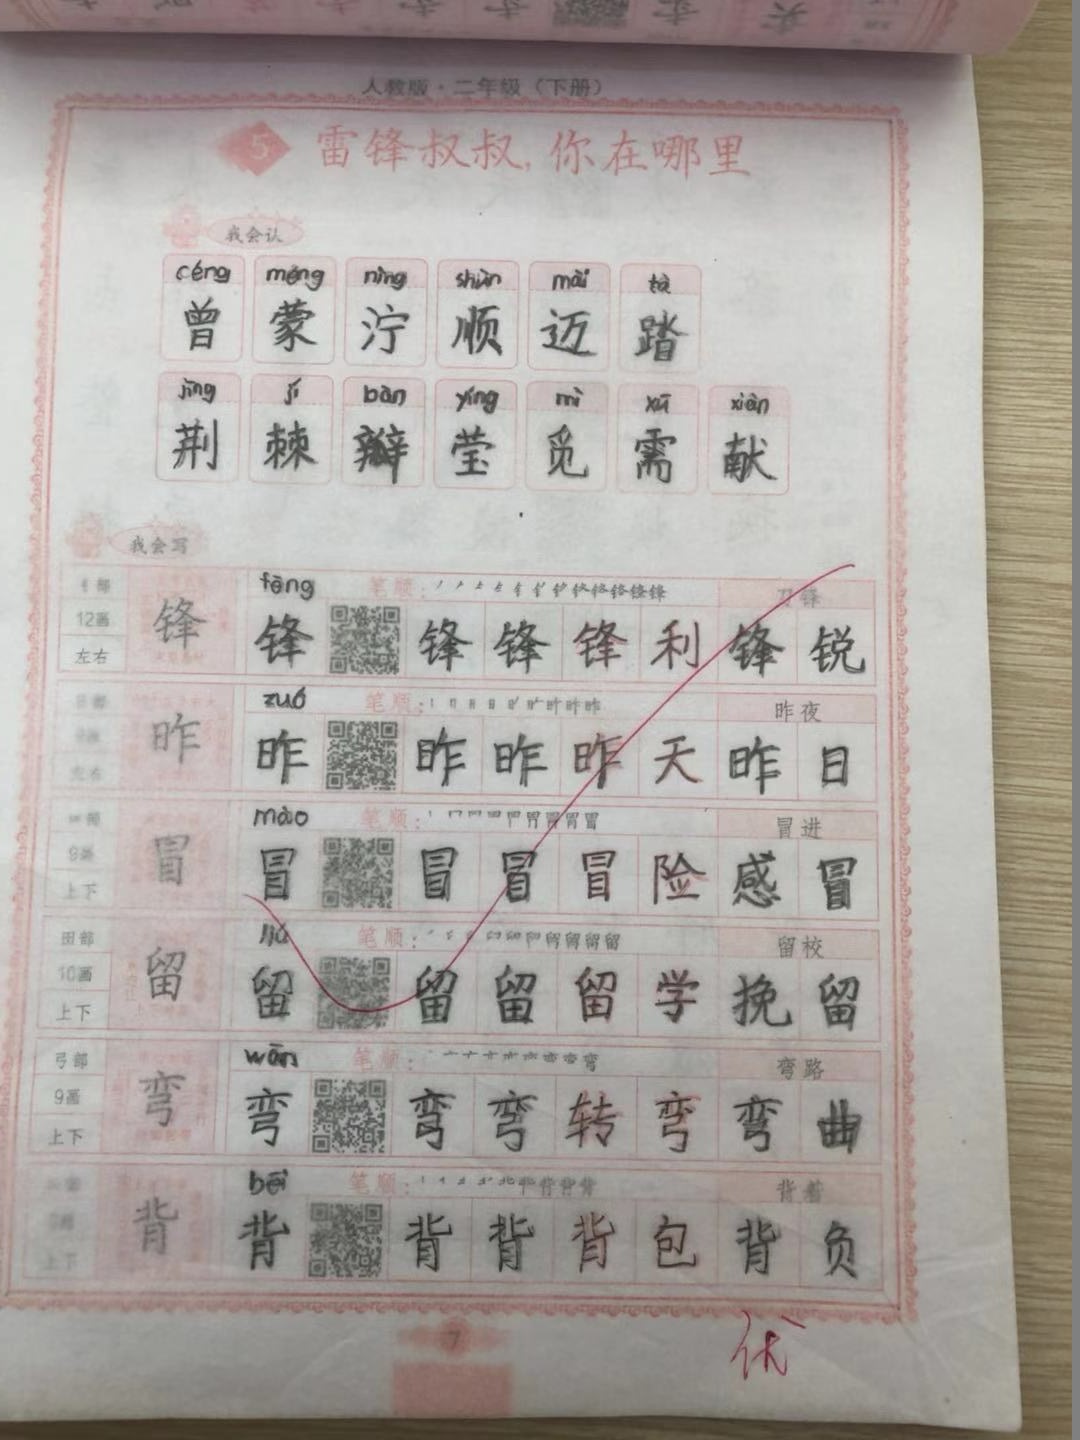 人教版·二年级（下册）
5 雷锋叔叔，你在哪里
我会认
céng méng nìng shùn mài tà
曾 蒙 泞 顺 迈 踏
jīng jí bàn yíng mì xū xiàn
荆 棘 瓣 莹 觅 需 献
我会写
fēng 笔顺： 刀锋
12画 左右 锋 锋 锋 锋 锋 利 锋 锐
zuó 笔顺： 昨夜
左右 昨 昨 昨 昨 昨 天 昨 日
mào 笔顺： 冒进
9画 上下 冒 冒 冒 冒 冒 险 感 冒
田部 liú 笔顺： 留校
10画 上下 留 留 留 留 留 学 挽 留
弓部 wān 笔顺： 弯路
9画 上下 弯 弯 弯 弯 转 弯 弯 曲
bēi 笔顺： 背着
上下 背 背 背 背 背 包 背 负
7
优